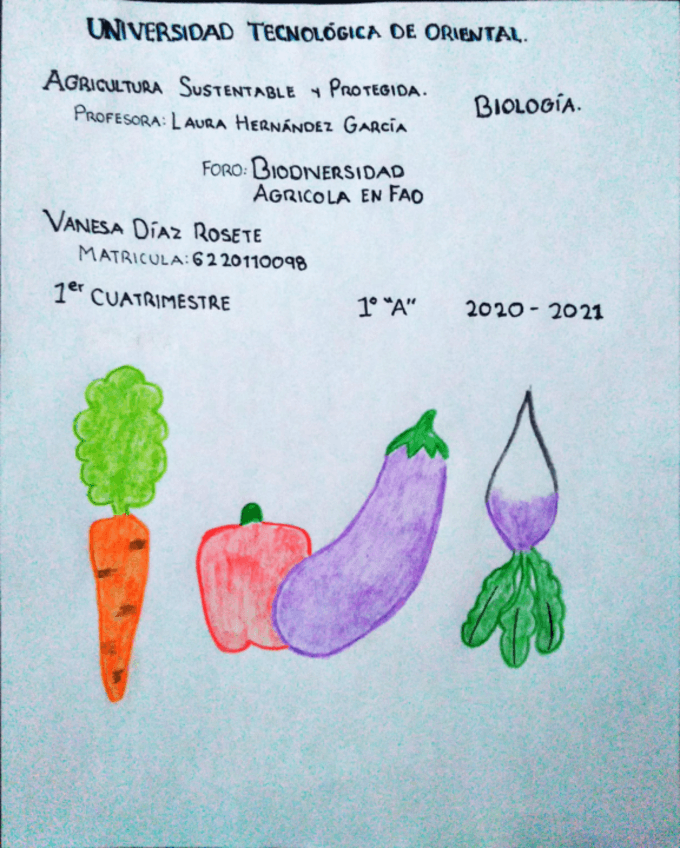 UNIVERSIDAD TECNOLÓGICA DE ORIENTAL.
AGRICULTURA SUSTENTABLE Y PROTEGIDA.
BIOLOGÍA.
PROFESORA: LAURA HERNÁNDEZ GARCÍA
FORO: BIODIVERSIDAD
AGRICOLA EN FAO
VANESA DÍAZ ROSETE
MATRICULA: 6220110098
1er CUATRIMESTRE 1° "A" 2020-2021